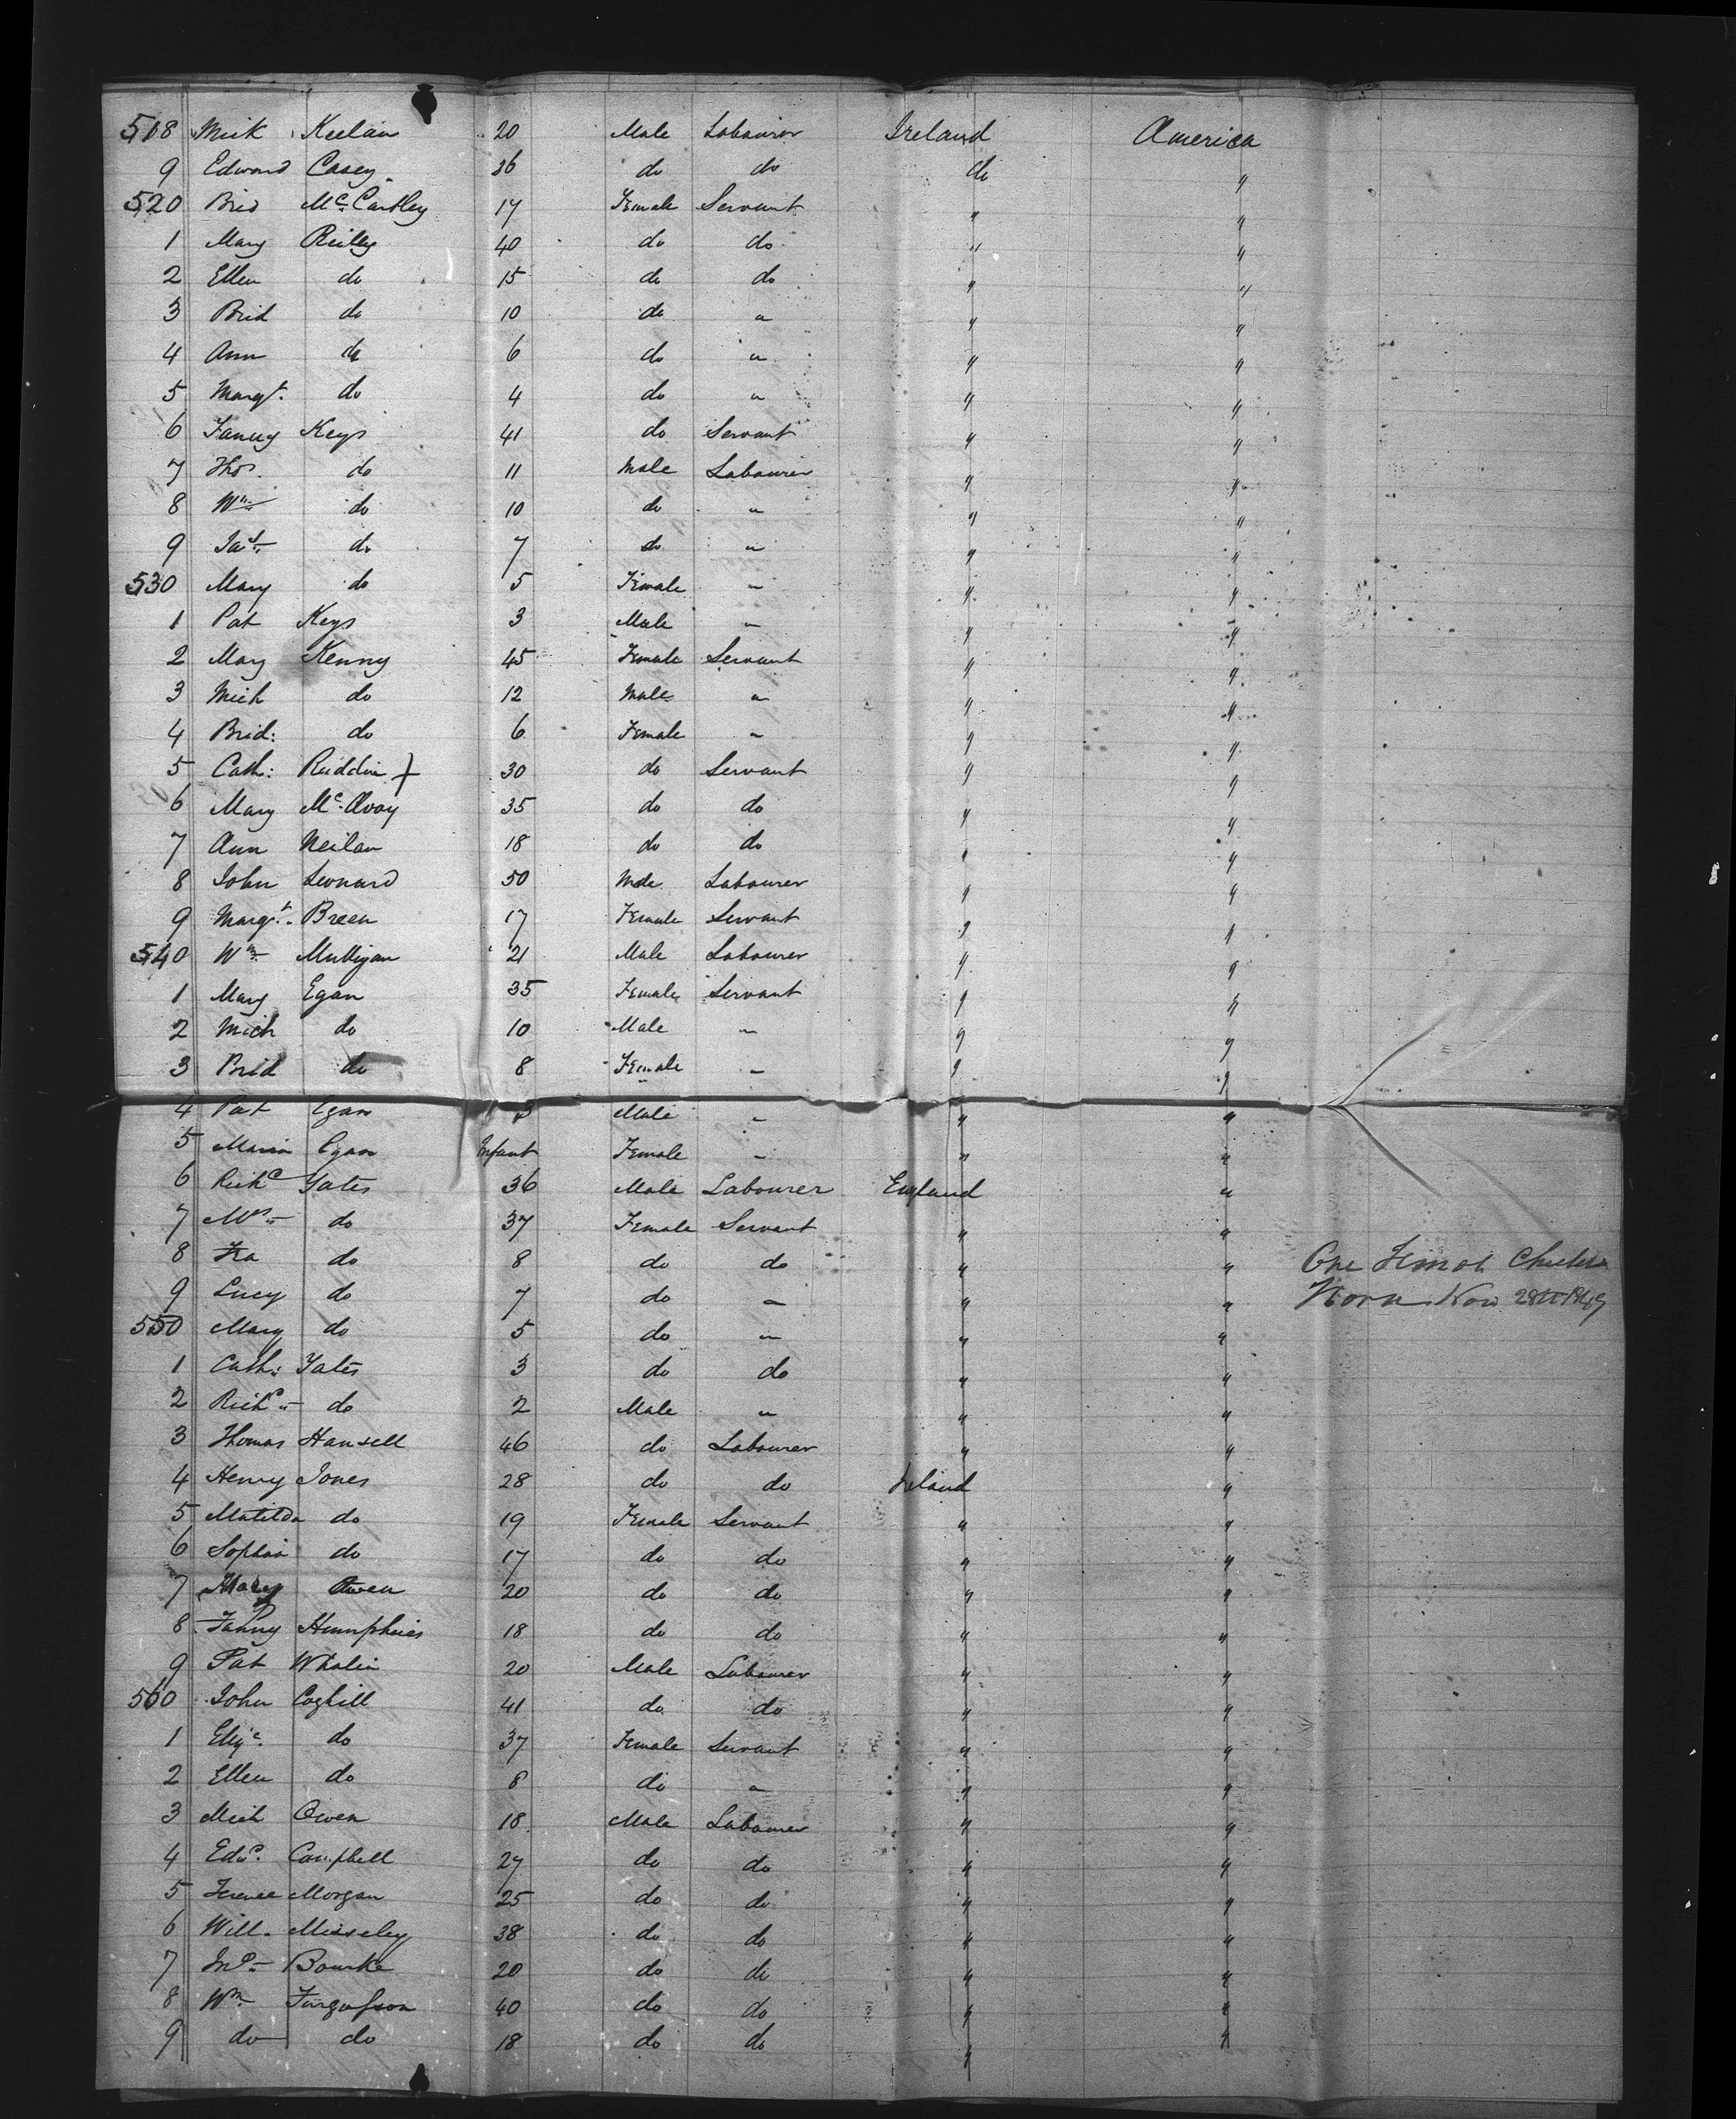 518 Mick Keelan 20 Male Labourer Ireland America
9 Edward Casey 36 do do do "
520 Brid McCartley 17 Female Servant " "
1 Mary Reilly 40 do do " "
2 Ellen do 15 do do " "
3 Brid do 10 do " " "
4 Ann do 6 do " " "
5 Margt. do 4 do " " "
6 Fanny Keys 41 do Servant " "
7 Thos. do 11 Male Labourer " "
8 Wm do 10 do " " "
9 Jas do 7 do " " "
530 Mary do 5 Female " " "
1 Pat Keys 3 Male " " "
2 Mary Kenny 45 Female Servant " "
3 Mich do 12 Male " " "
4 Brid: do 6 Female " " "
5 Cath: Ruddin + 30 do Servant " "
6 Mary McAvoy 35 do do " "
7 Ann Neilan 18 do do " "
8 John Leonard 50 Male Labourer " "
9 Margt. Breen 17 Female Servant " "
540 Wm Mulligan 21 Male Labourer " "
1 Mary Egan 35 Female Servant " "
2 Mich do 10 Male " " "
3 Brid do 8 Female " " "
4 Pat Egan Male " " "
5 Maria Egan Infant Female " " "
6 Richd Yates 36 Male Labourer England "
7 Mrs do 37 Female Servant " "
8 Fra do 8 do do " " One Child
9 Lucy do 7 do " " " Born Nov 28th 1849
550 Mary do 5 do " " "
1 Cath: Yates 3 do do " "
2 Richd do 2 Male " " "
3 Thomas Hansell 46 do Labourer " "
4 Henry Jones 28 do do Ireland "
5 Matilda do 19 Female Servant " "
6 Sophia do 17 do do " "
7 Mary Owen 20 do do " "
8 Fanny Humphries 18 do do " "
9 Pat Whalin 20 Male Labourer " "
560 John Coghill 41 do do " "
1 Eliza. do 37 Female Servant " "
2 Ellen do 8 do " " "
3 Mich Owen 18 Male Labourer " "
4 Edwd. Campbell 27 do do " "
5 Terence Morgan 25 do do " "
6 Will. Misseley 38 do do " "
7 Jno Bourke 20 do do " "
8 Wm Furgusson 40 do do " "
9 do do 18 do do " "